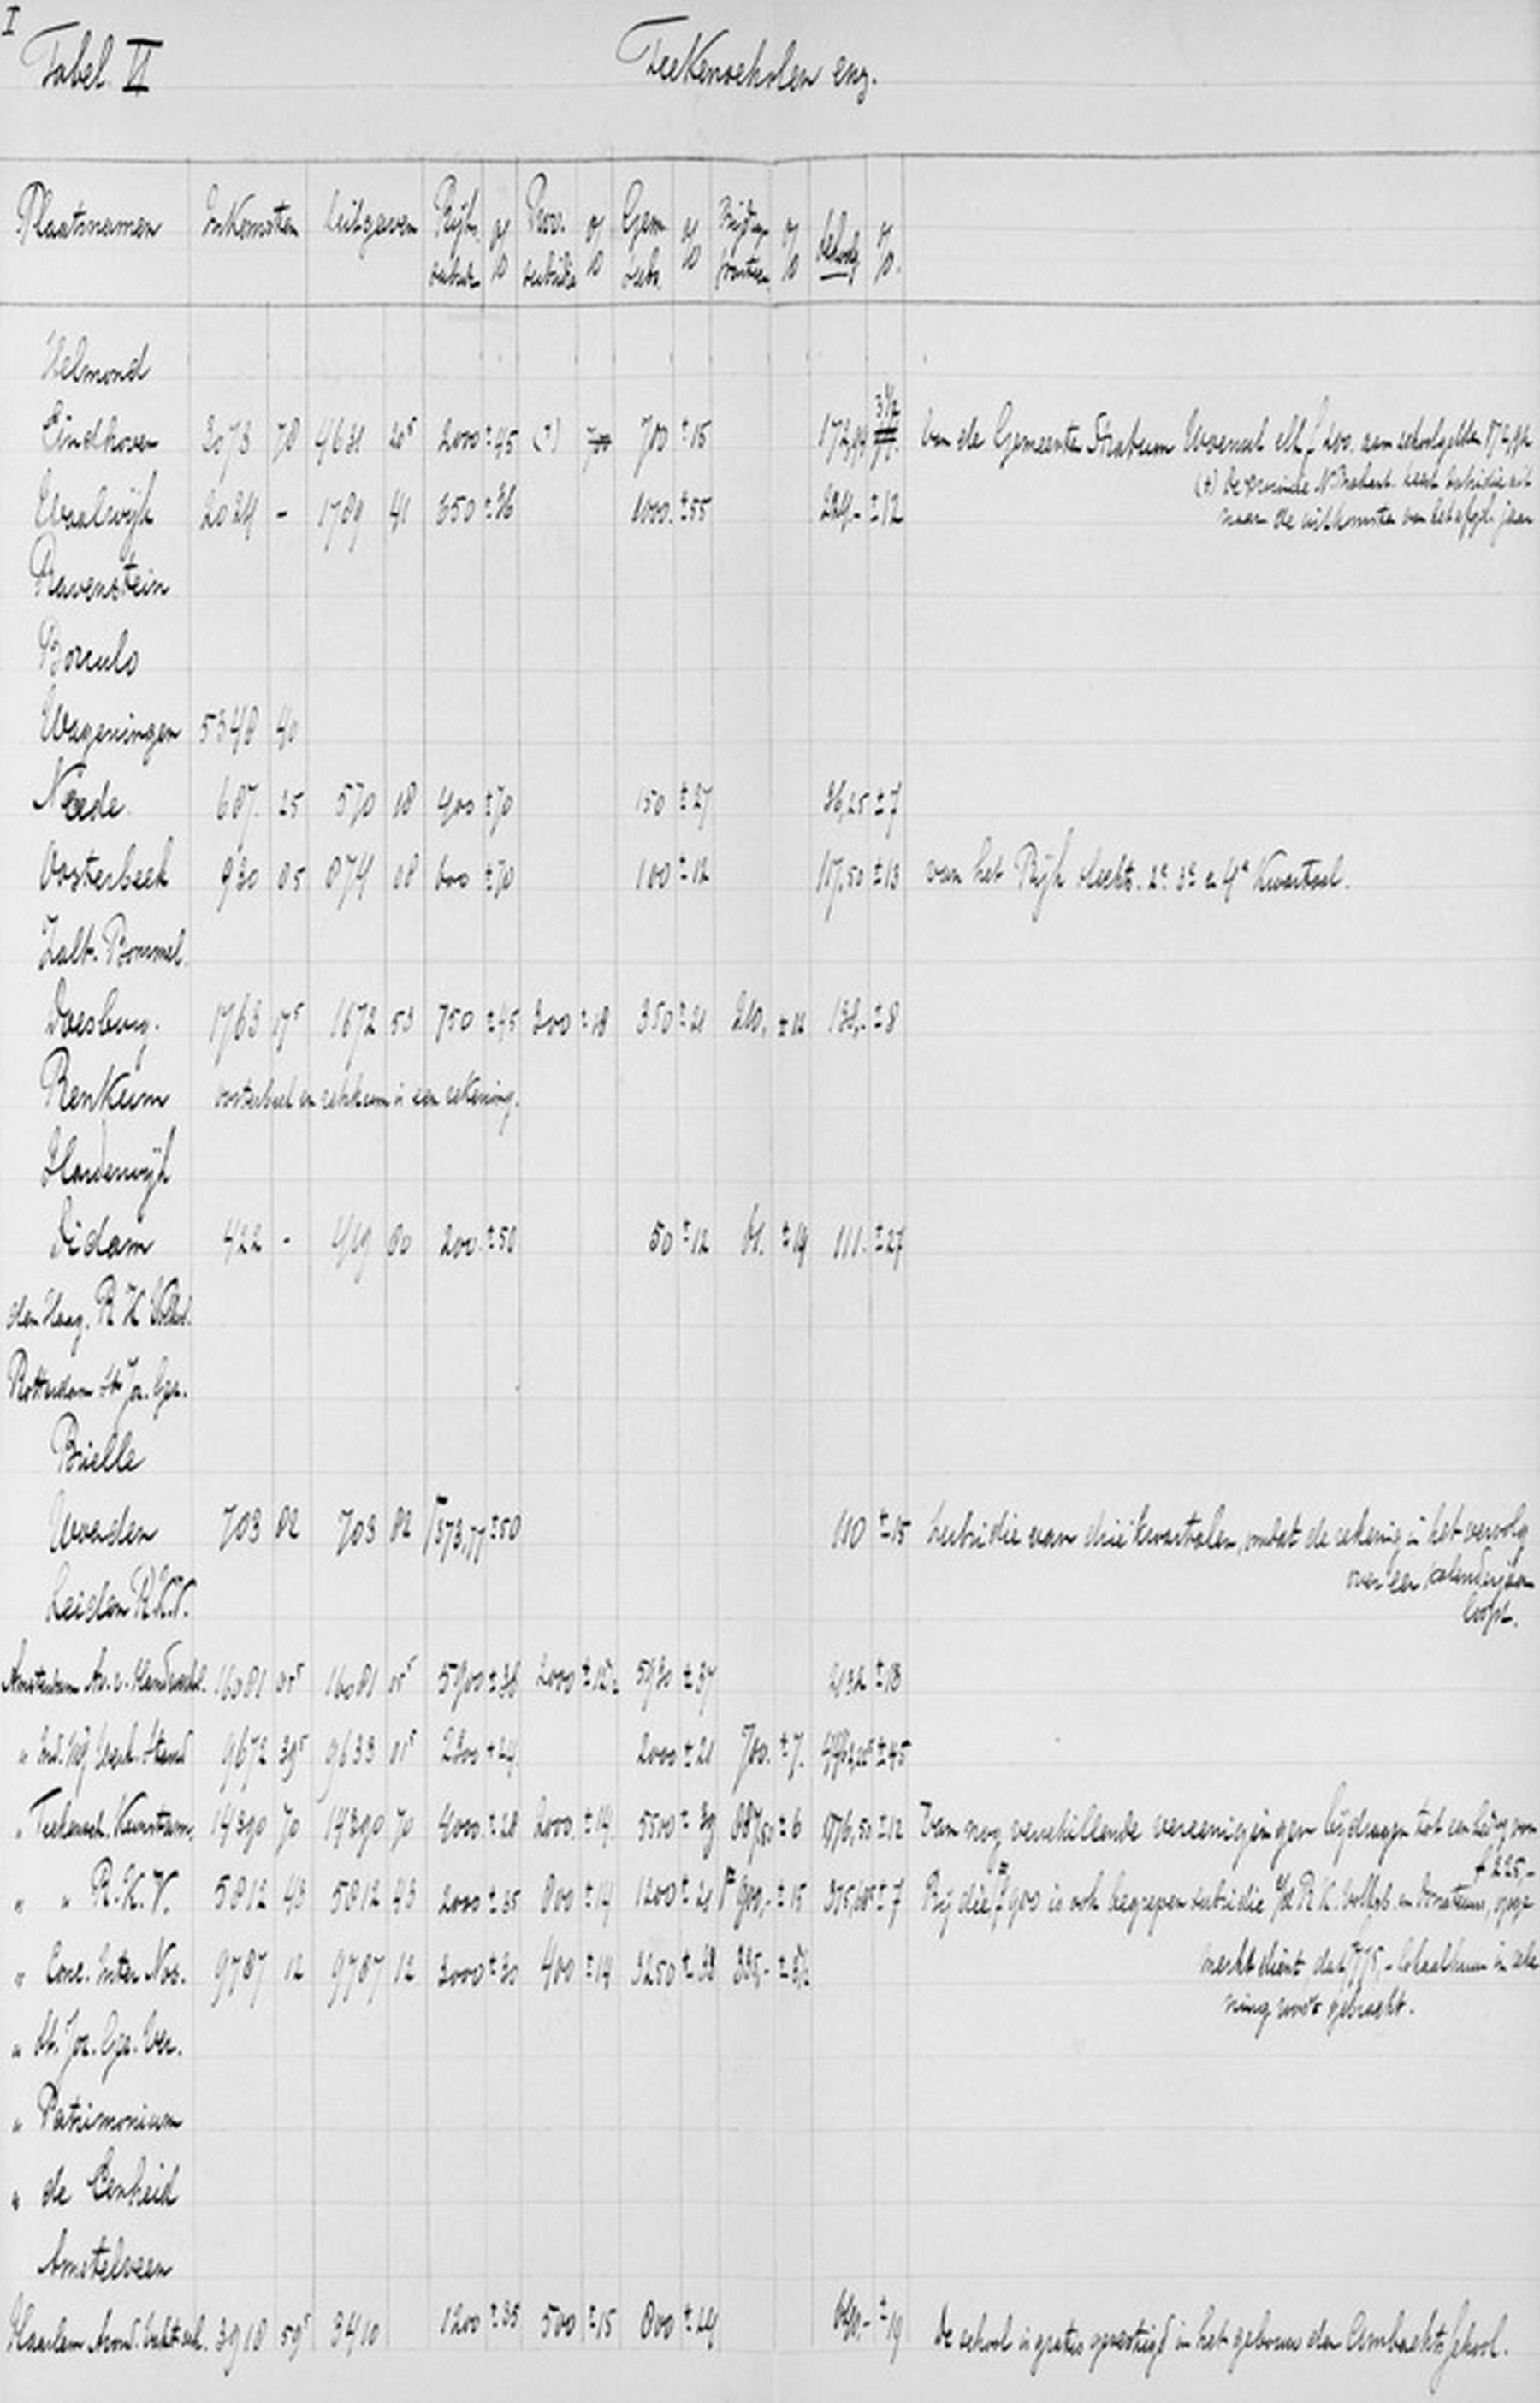 I
Tabel VI Teekenscholen enz.
Plaatsnamen Inkomsten Uitgaven Rijks subs. % Prov. subsidie % Gem. subs. % Bijdrag. % schoolg. %
Helmond
Eindhoven 3073 70 4631 20⁵ 2000 ±45 (+) 700 ±15 172,94 3½ van de Gemeente Stratum Woensel elk f 200. aan schoolgelden 172,94
(+) De provincie N. Brabant keert subsidie uit
Waalwijk 2024 - 1789 41 650 ±36 1000. ±55 224,- ±12 naar de uitkomsten van het afgel. jaar
Ravenstein
Borculo
Wageningen 5348 40
Neede 607. 25 570 18 400 ±70 150 ±27 36,25 ±7
Oosterbeek 930 05 874 08 600 ±70 100 ±12 117,50 ±13 van het Rijk slechts. 2e 3e en 4e Kwartaal.
Zalt-Bommel.
Doesburg. 1763 17⁵ 1672 53 750 ±45 300 ±18 350 ±21 210, ±12 138,- ±8
Renkum Oosterbeek en renkum in een rekening.
Harderwijk
Didam 422 - 419 80 200. ±50 50 ±12 61. ±14 111. ±27
den Haag. R K Volksb.
Rotterdam St. Joz. Gez.
Brielle
Woerden 703 82 703 82 373,77 ±50 110 ±15 Subsidie van drie kwartalen, omdat de rekening in het vervolg
over een kalenderjaar
loopt.
Leiden R.K.V.
Amsterdam Av. v. 16081 05⁵ 16081 05⁵ 5900 ±36 2000 ±12½ 5930 ±37 2132 ±13
" 9672 39⁵ 9633 01⁵ 2300 ±24. 2000 ±21 700. ±7. ±45
" Teekensch. Kunstamb. 14390 70 14390 70 4000. ±28 2000. ±14. 5500 ±39 887,50 ±6 1776,50 ±12 Van nog verschillende vereenigingen bijdragen tot een bedrag van
f 225,-
" " R.K.V. 5812 43 5812 43 2000 ±35 800 ±14 1200 ±21 f 900,- ±15 ±7 Bij die f 900 is ook begrepen subsidie v/d R.K. Volksb. en donateurs, opge-
" Conc. Inter Nos. 9787 12 9787 12 3000 ±30 400 ±14 3250 ±38 325,- merkt dient dat f 775,- lokaalhuur in reke
ning wordt gebracht.
" St. Joz. Gez. Ver.
" Patrimonium
" de Eenheid
Amstelveen
Haarlem Avond. 3918 59⁵ 3410 1200 ±35 500 ±15 800 ±24 ±19 De school is gratis gevestigd in het gebouw der Ambachtsschool.